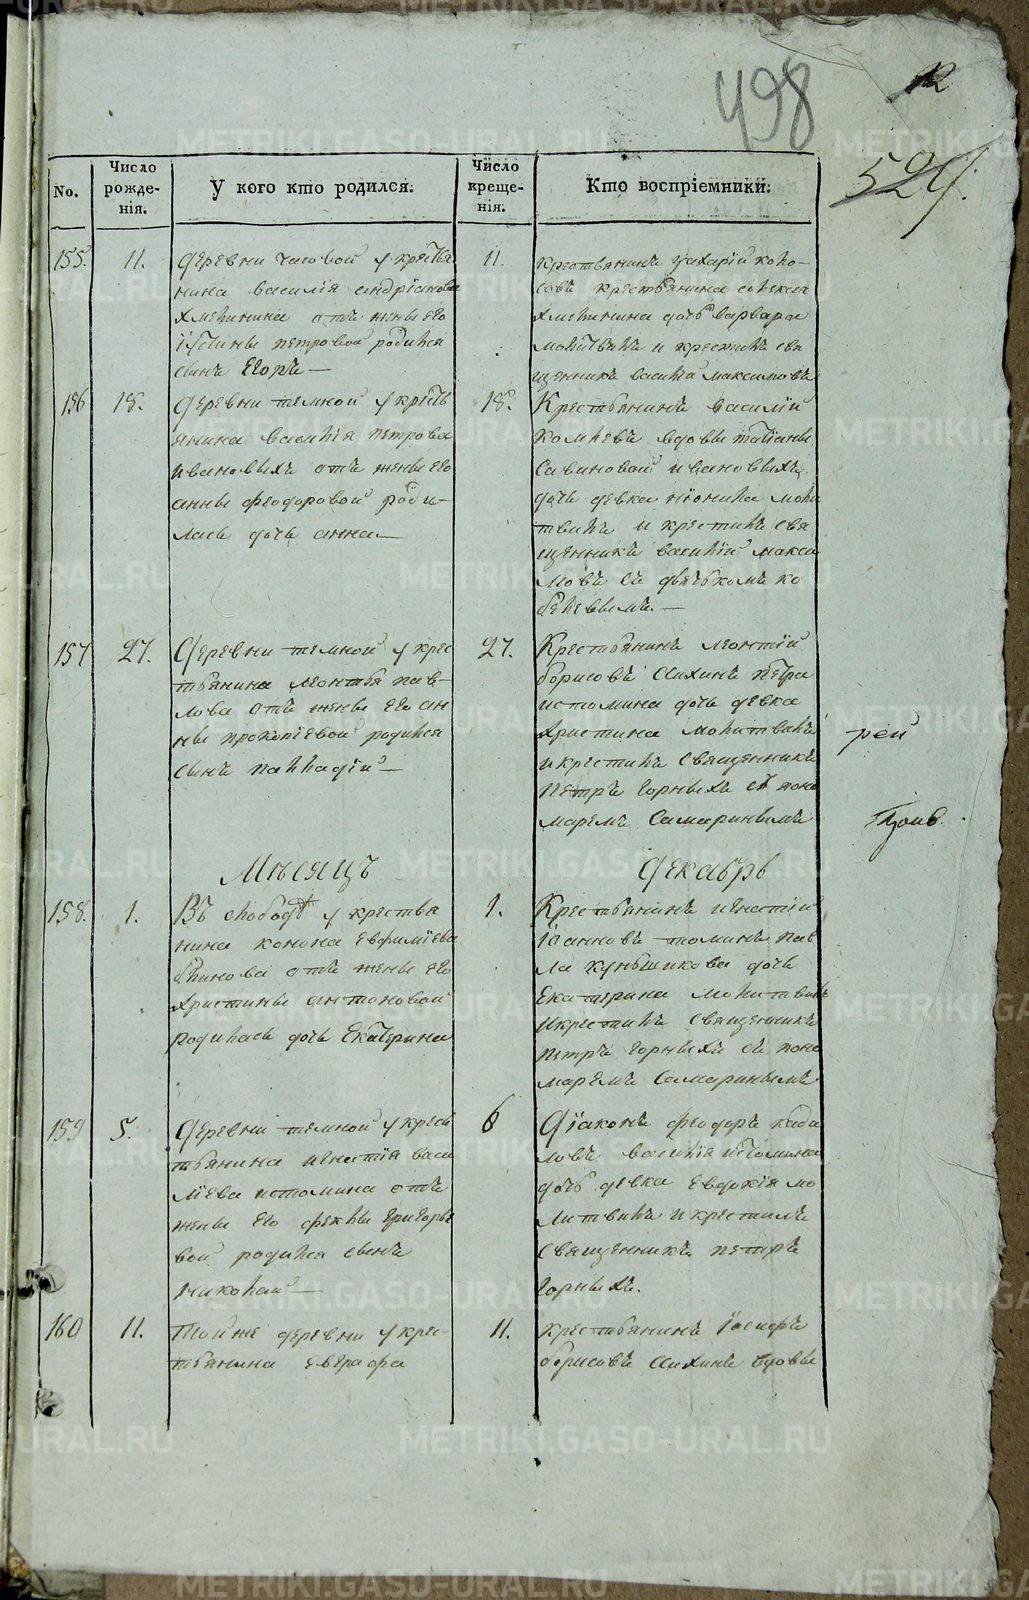 498
12
529.
No.
Число рожде- нія.
У кого кто родился.
Число креще- нія.
Кто воспріемники.
155. 11.
деревни часовой у крестья
нина василія андріанова
хмелинина отъ жены его
іустины петровой родился
сынъ Егоръ —
11.
крестьянинъ захарій коло-
совъ крестьянина алексея
хмелинина дочь варвара
молитвилъ и крестилъ свя
щенникъ василій максимовъ
156 18.
деревни темной у кресть
янина василія петрова
ивановыхъ отъ жены его
анны феодоровой роди-
лась дочь анна —
18.
Крестьянинъ василий
вдовы татіаны
Савиновой ивановыхъ
дочь девка моли
твилъ и крестилъ свя
щенникъ василій макси
мовъ съ дьячкомъ ко
белевымъ. —
157 27.
деревни темной у крес
тьянина леонтья пав-
лова отъ жены его ан
ны прокопіевой родился
сынъ палладій —
27.
Крестьянинъ леонтій
борисовъ Алихинъ петра
истомина дочь девка
христина молитвилъ
и крестилъ священникъ
петръ Горныхъ съ поно
маремъ Самаринымъ
рей
Мѣсяцъ Декабрь
158. 1.
Въ слободѣ у крестья
нина конона Евфиміева
блинова отъ жены его
христины антоновой
родилась дочь Екатерина
1.
Крестьянинъ игнатій
іоанновъ томинъ пав
ла кузьшикова дочь
Екатерина молитвилъ
и крестилъ священникъ
петръ Горныхъ съ поно
маремъ Самаринымъ
159 5.
деревни темной у крес
тьянина игнатія васи
лиева истомина отъ
жены его феклы григорье
вой родился сынъ
николай —
6
Діаконъ феодоръ када
ловъ василія истомина
дочь девка Евдокія мо
литвилъ и крестилъ
священникъ петръ
Горныхъ.
160 11.
той же деревни у крес-
тьянина евграфа
11.
крестьянинъ іосифъ
борисовъ Алихинъ вдовы
METRIKI.GASO-URAL.RU